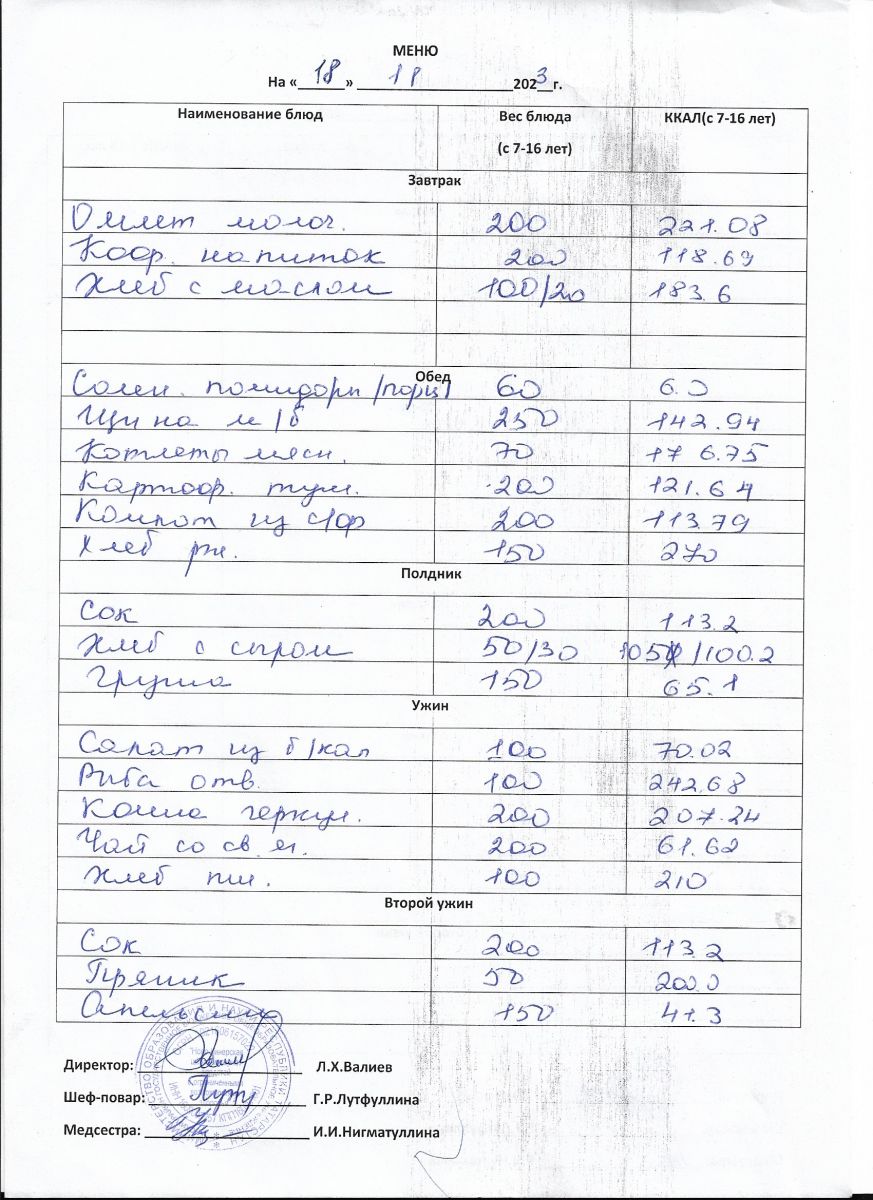 МЕНЮ
На «18» 11 2023 г.
Наименование блюд Вес блюда (с 7-16 лет) ККАЛ(с 7-16 лет)
Завтрак
Омлет молоч. 200 221.08
Кофр. напиток 200 118.69
Хлеб с маслом 100/20 183.6
Обед
Солен. помидоры /порц/ 60 6.0
Щи на м/б 250 142.94
Котлеты мясн. 70 176.75
Картоф. туш. 200 121.64
Компот из с/ф 200 113.79
Хлеб рж. 150 270
Полдник
Сок 200 113.2
Хлеб с сыром 50/30 105 /100.2
Груша 150 65.1
Ужин
Салат из б/кап 100 70.02
Рыба отв. 100 242.68
Каша геркул. 200 207.24
Чай со св. м. 200 61.62
Хлеб пш. 100 210
Второй ужин
Сок 200 113.2
Пряник 50 200.0
Апельсин 150 41.3
Директор: Л.Х.Валиев
Шеф-повар: Г.Р.Лутфуллина
Медсестра: И.И.Нигматуллина